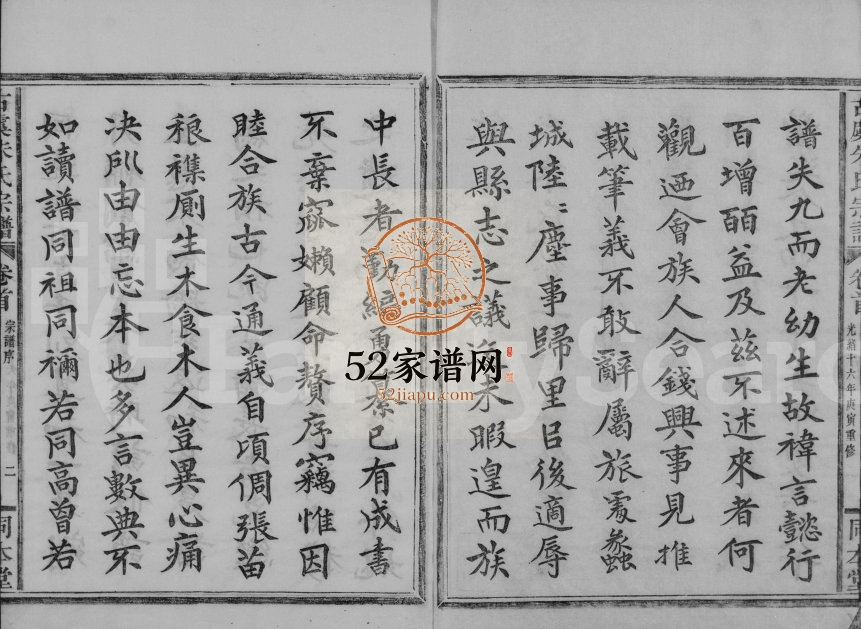 譜失九而老幼生故禕言懿行
百增皕益及茲不述來者何
觀迺會族人合錢興事見推
載筆義不敢辭屬旅寓蠡
城陸塵事歸里㠯後適辱
與縣志之議未暇遑而族
中長者勸已有成書
不棄窳嬾顧命贅序竊惟因
睦合族古今通義自頃倜張苗
稂襍廁生木食木人豈異心痛
决𠩄由由忘本也多言數典不
如讀譜同祖同禰若同高曾若
朱氏宗譜
卷首
宗譜序
二
同本堂
光緒十六年庚寅重修
52家谱网
52jiapu.com